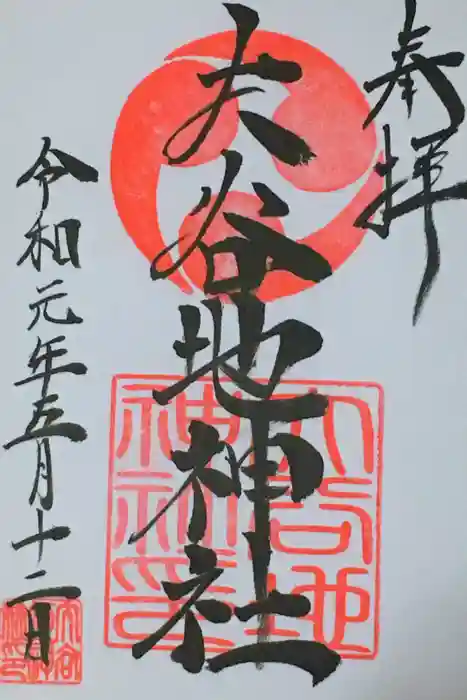 奉拝
大谷地神社
令和元年五月十二日
大谷地
神社印